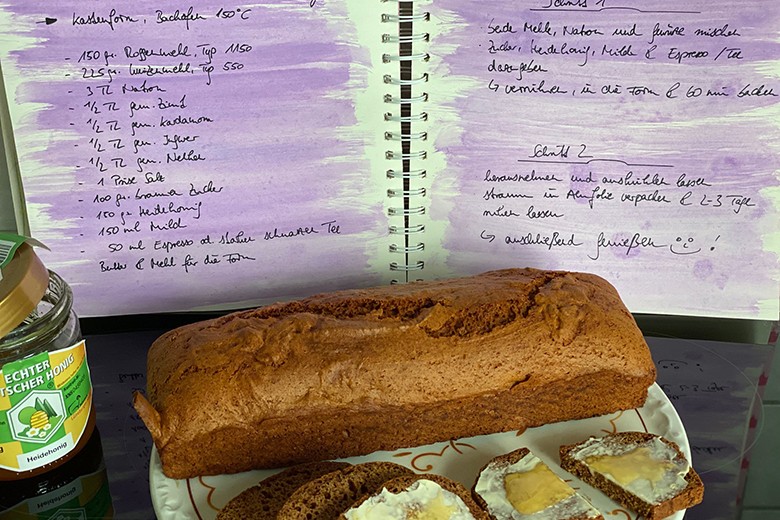 Kastenform, Backofen 150°C
- 150 gr. Roggenmehl, Typ 1150
- 225 gr. Weizenmehl, Typ 550
- 3 TL Natron
- 1/2 TL gem. Zimt
- 1/2 TL gem. Kardamom
- 1/2 TL gem. Ingwer
- 1/2 TL gem. Nelken
- 1 Prise Salz
- 100 gr. brauner Zucker
- 150 gr. Heidehonig
- 150 ml Milch
- 50 ml Espresso od. starker schwarzer Tee
Butter & Mehl für die Form
Schritt 1
beide Mehle, Natron und Gewürze mischen
Zucker, Heidehonig, Milch & Espresso / Tee
dazugeben
↳ verrühren, in die Form & 60 min backen
Schritt 2
herausnehmen und auskühlen lassen
stramm in Alufolie verpacken & 2-3 Tage
ruhen lassen
↳ anschließend genießen !
ECHTER
TSCHER HONIG
Heidehonig